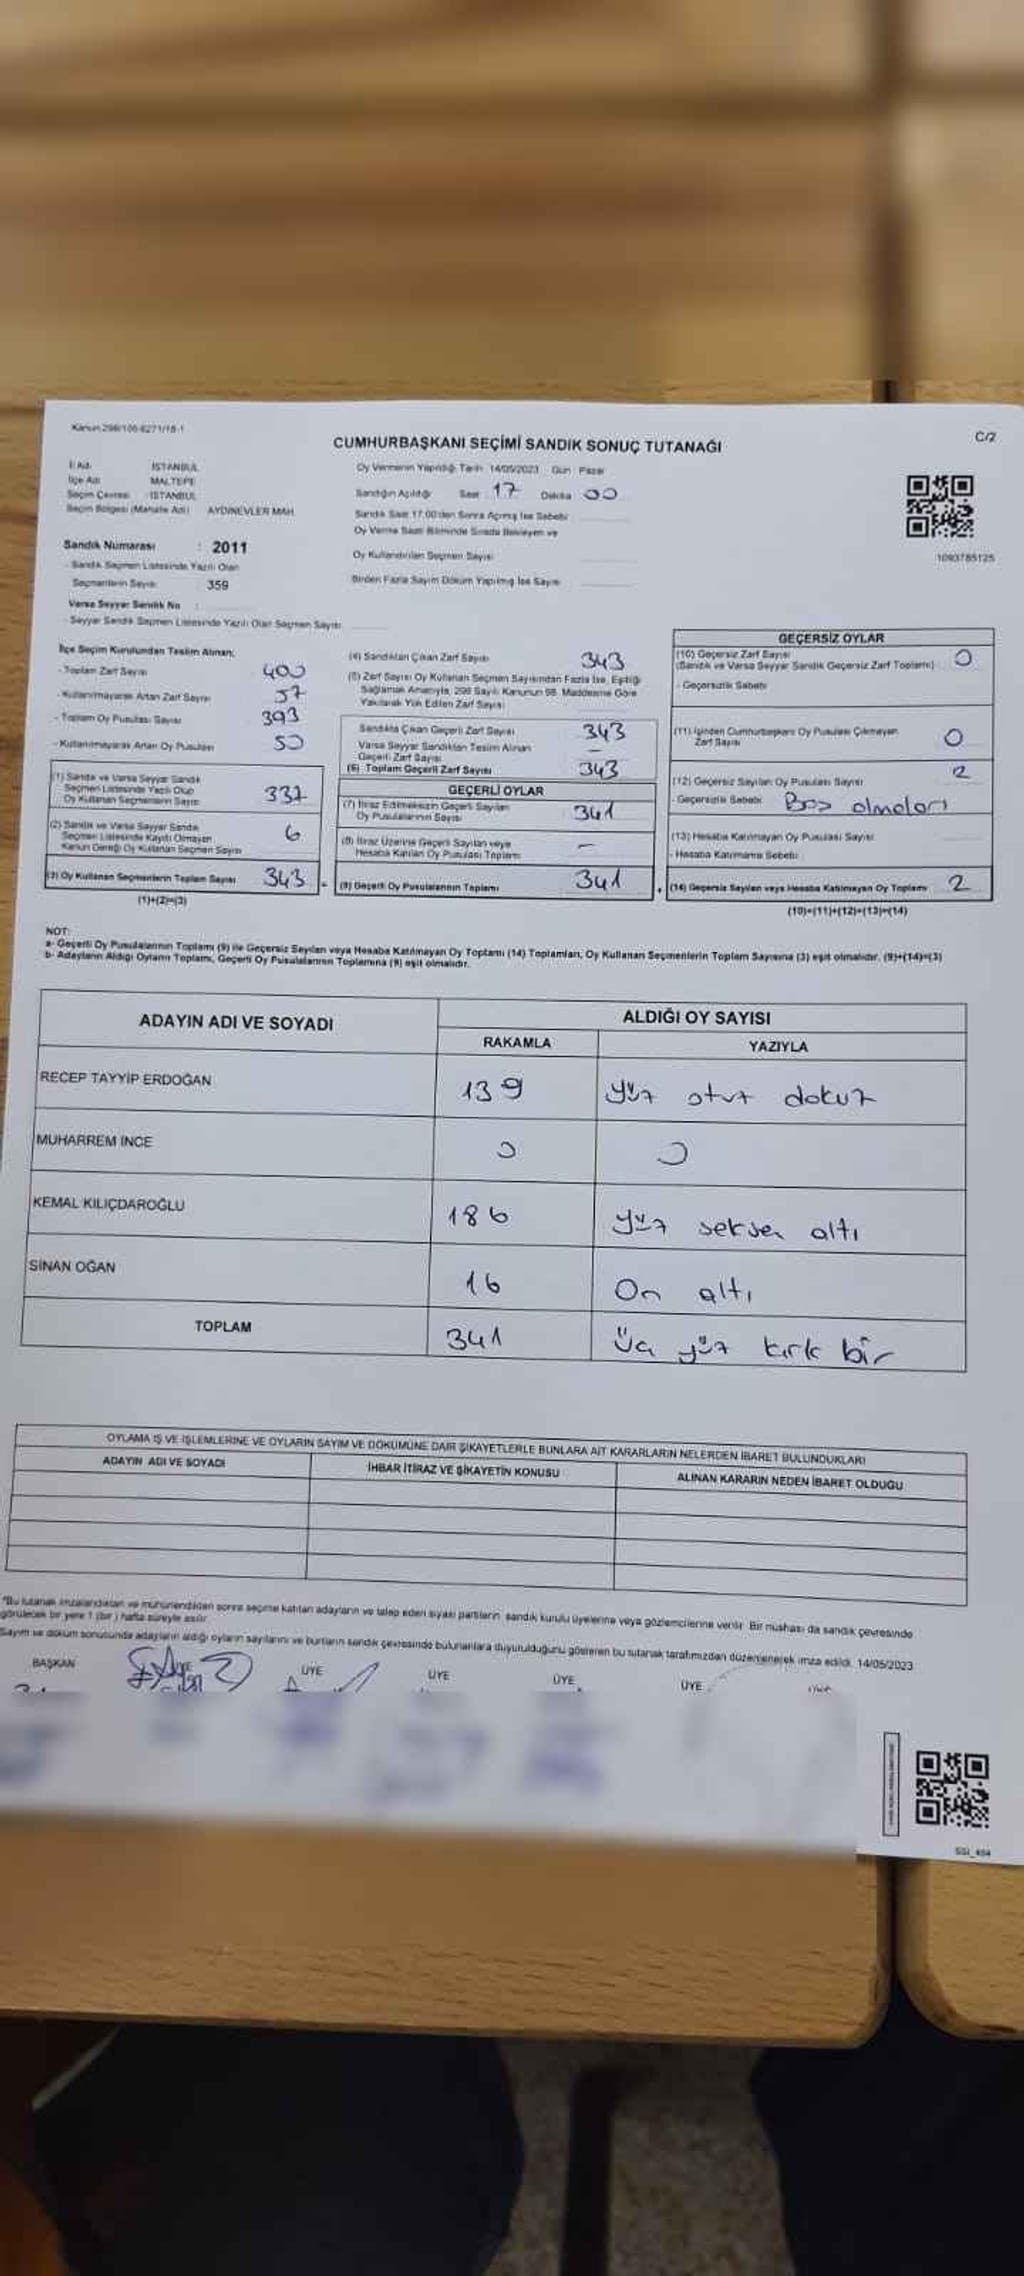 Kanun 298/105-6271/18-1
C/2
CUMHURBAŞKANI SEÇİMİ SANDIK SONUÇ TUTANAĞI
İl Adı İSTANBUL
İlçe Adı MALTEPE
Seçim Çevresi İSTANBUL
Seçim Bölgesi (Mahalle Adı) AYDINEVLER MAH.
Oy Vermenin Yapıldığı Tarih 14/05/2023 Gün: Pazar
Sandığın Açıldığı Saat 17 Dakika 00
Sandık Saat 17.00'den Sonra Açılmış İse Sebebi
Oy Verme Saati Bitiminde Sırada Bekleyen ve
Oy Kullandırılan Seçmen Sayısı
Birden Fazla Sayım Döküm Yapılmış İse Sayısı
1093785125
Sandık Numarası : 2011
- Sandık Seçmen Listesinde Yazılı Olan
Seçmenlerin Sayısı 359
Varsa Seyyar Sandık No :
- Seyyar Sandık Seçmen Listesinde Yazılı Olan Seçmen Sayısı
İlçe Seçim Kurulundan Teslim Alınan;
- Toplam Zarf Sayısı 400
- Kullanılmayarak Artan Zarf Sayısı 57
- Toplam Oy Pusulası Sayısı 393
- Kullanılmayarak Artan Oy Pusulası 50
(1) Sandık ve Varsa Seyyar Sandık
Seçmen Listesinde Yazılı Olup
Oy Kullanan Seçmenlerin Sayısı 337
(2) Sandık ve Varsa Seyyar Sandık
Seçmen Listesinde Kayıtlı Olmayan
Kanun Gereği Oy Kullanan Seçmen Sayısı 6
(3) Oy Kullanan Seçmenlerin Toplam Sayısı 343
(1)+(2)=(3)
(4) Sandıktan Çıkan Zarf Sayısı 343
(5) Zarf Sayısı Oy Kullanan Seçmen Sayısından Fazla İse, Eşitliği
Sağlamak Amacıyla, 298 Sayılı Kanunun 98. Maddesine Göre
Yakılarak Yok Edilen Zarf Sayısı
Sandıkta Çıkan Geçerli Zarf Sayısı 343
Varsa Seyyar Sandıktan Teslim Alınan
Geçerli Zarf Sayısı -
(6) Toplam Geçerli Zarf Sayısı 343
GEÇERLİ OYLAR
(7) İtiraz Edilmeksizin Geçerli Sayılan
Oy Pusulalarının Sayısı 341
(8) İtiraz Üzerine Geçerli Sayılan veya
Hesaba Katılan Oy Pusulası Toplamı -
= (9) Geçerli Oy Pusulalarının Toplamı 341
GEÇERSİZ OYLAR
(10) Geçersiz Zarf Sayısı 0
(Sandık ve Varsa Seyyar Sandık Geçersiz Zarf Toplamı)
- Geçersizlik Sebebi
(11) İçinden Cumhurbaşkanı Oy Pusulası Çıkmayan
Zarf Sayısı 0
(12) Geçersiz Sayılan Oy Pusulası Sayısı 2
- Geçersizlik Sebebi Boş olmaları
(13) Hesaba Katılmayan Oy Pusulası Sayısı
- Hesaba Katılmama Sebebi
+ (14) Geçersiz Sayılan veya Hesaba Katılmayan Oy Toplamı 2
(10)+(11)+(12)+(13)=(14)
NOT:
a- Geçerli Oy Pusulalarının Toplamı (9) ile Geçersiz Sayılan veya Hesaba Katılmayan Oy Toplamı (14) Toplamları, Oy Kullanan Seçmenlerin Toplam Sayısına (3) eşit olmalıdır. (9)+(14)=(3)
b- Adayların Aldığı Oyların Toplamı, Geçerli Oy Pusulalarının Toplamına (9) eşit olmalıdır.
ADAYIN ADI VE SOYADI ALDIĞI OY SAYISI
RAKAMLA YAZIYLA
RECEP TAYYİP ERDOĞAN 139 yüz otuz dokuz
MUHARREM İNCE 0 0
KEMAL KILIÇDAROĞLU 186 yüz seksen altı
SİNAN OĞAN 16 On altı
TOPLAM 341 Üç yüz kırk bir
OYLAMA İŞ VE İŞLEMLERİNE VE OYLARIN SAYIM VE DÖKÜMÜNE DAİR ŞİKAYETLERLE BUNLARA AİT KARARLARIN NELERDEN İBARET BULUNDUKLARI
ADAYIN ADI VE SOYADI İHBAR İTİRAZ VE ŞİKAYETİN KONUSU ALINAN KARARIN NEDEN İBARET OLDUĞU
*Bu tutanak imzalandıktan ve mühürlendikten sonra seçime katılan adayların ve talep eden siyasi partilerin sandık kurulu üyelerine veya gözlemcilerine verilir. Bir nüshası da sandık çevresinde
görülecek bir yere 1 (bir) hafta süreyle asılır.
Sayım ve döküm sonucunda adayların aldığı oyların sayılarını ve bunların sandık çevresinde bulunanlara duyurulduğunu gösteren bu tutanak tarafımızdan düzenlenerek imza edildi. 14/05/2023
BAŞKAN ÜYE ÜYE ÜYE ÜYE